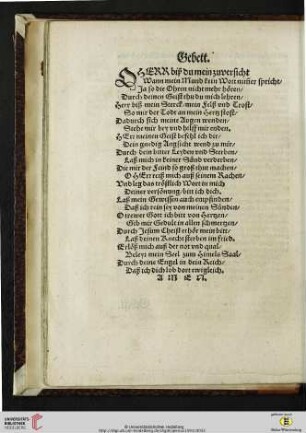 Gebett.
O HERR biß du mein zuversicht
Wann mein Mund kein Wort nimer spricht/
Ja so die Ohren nicht mehr hören/
Durch deinen Geist thu du mich lehren/
Herr biß mein Sterck/ mein Felß und Trost/
So mir der Todt an mein Hertz stost/
Dadurch sich meine Augen wenden/
Stehe mir bey und hilff mir enden.
HErr meinen Geist befehl ich dir/
Dein gnedig Angsicht wend zu mir/
Durch dein bitter Leyden und Sterben/
Laß mich in keiner Sünd verderben/
Die mir der Feind so groß thut machen/
O HErr reiß mich auß seinem Rachen/
Und leg das tröstlich Wort in mich
Deiner versönung/ bitt ich dich,
Laß mein Gewissen auch empfinden/
Daß ich rein sey von meinen Sünden/
O trewer Gott ich bitt von Hertzen/
Gib mir Gedult in allen schmertzen/
Durch Jesum Christ erhör mein bitt/
Laß deinen Knecht sterben im fried,
Erlöß mich auß der not und qual/
Beleyt mein Seel zum Himels Saal/
Durch deine Engel in dein Reich/
Daß ich dich lob dort ewigleich.
A M E N.
UNIVERSITÄTS-
BIBLIOTHEK
HEIDELBERG
© Universitätsbibliothek Heidelberg
Baden-Württemberg